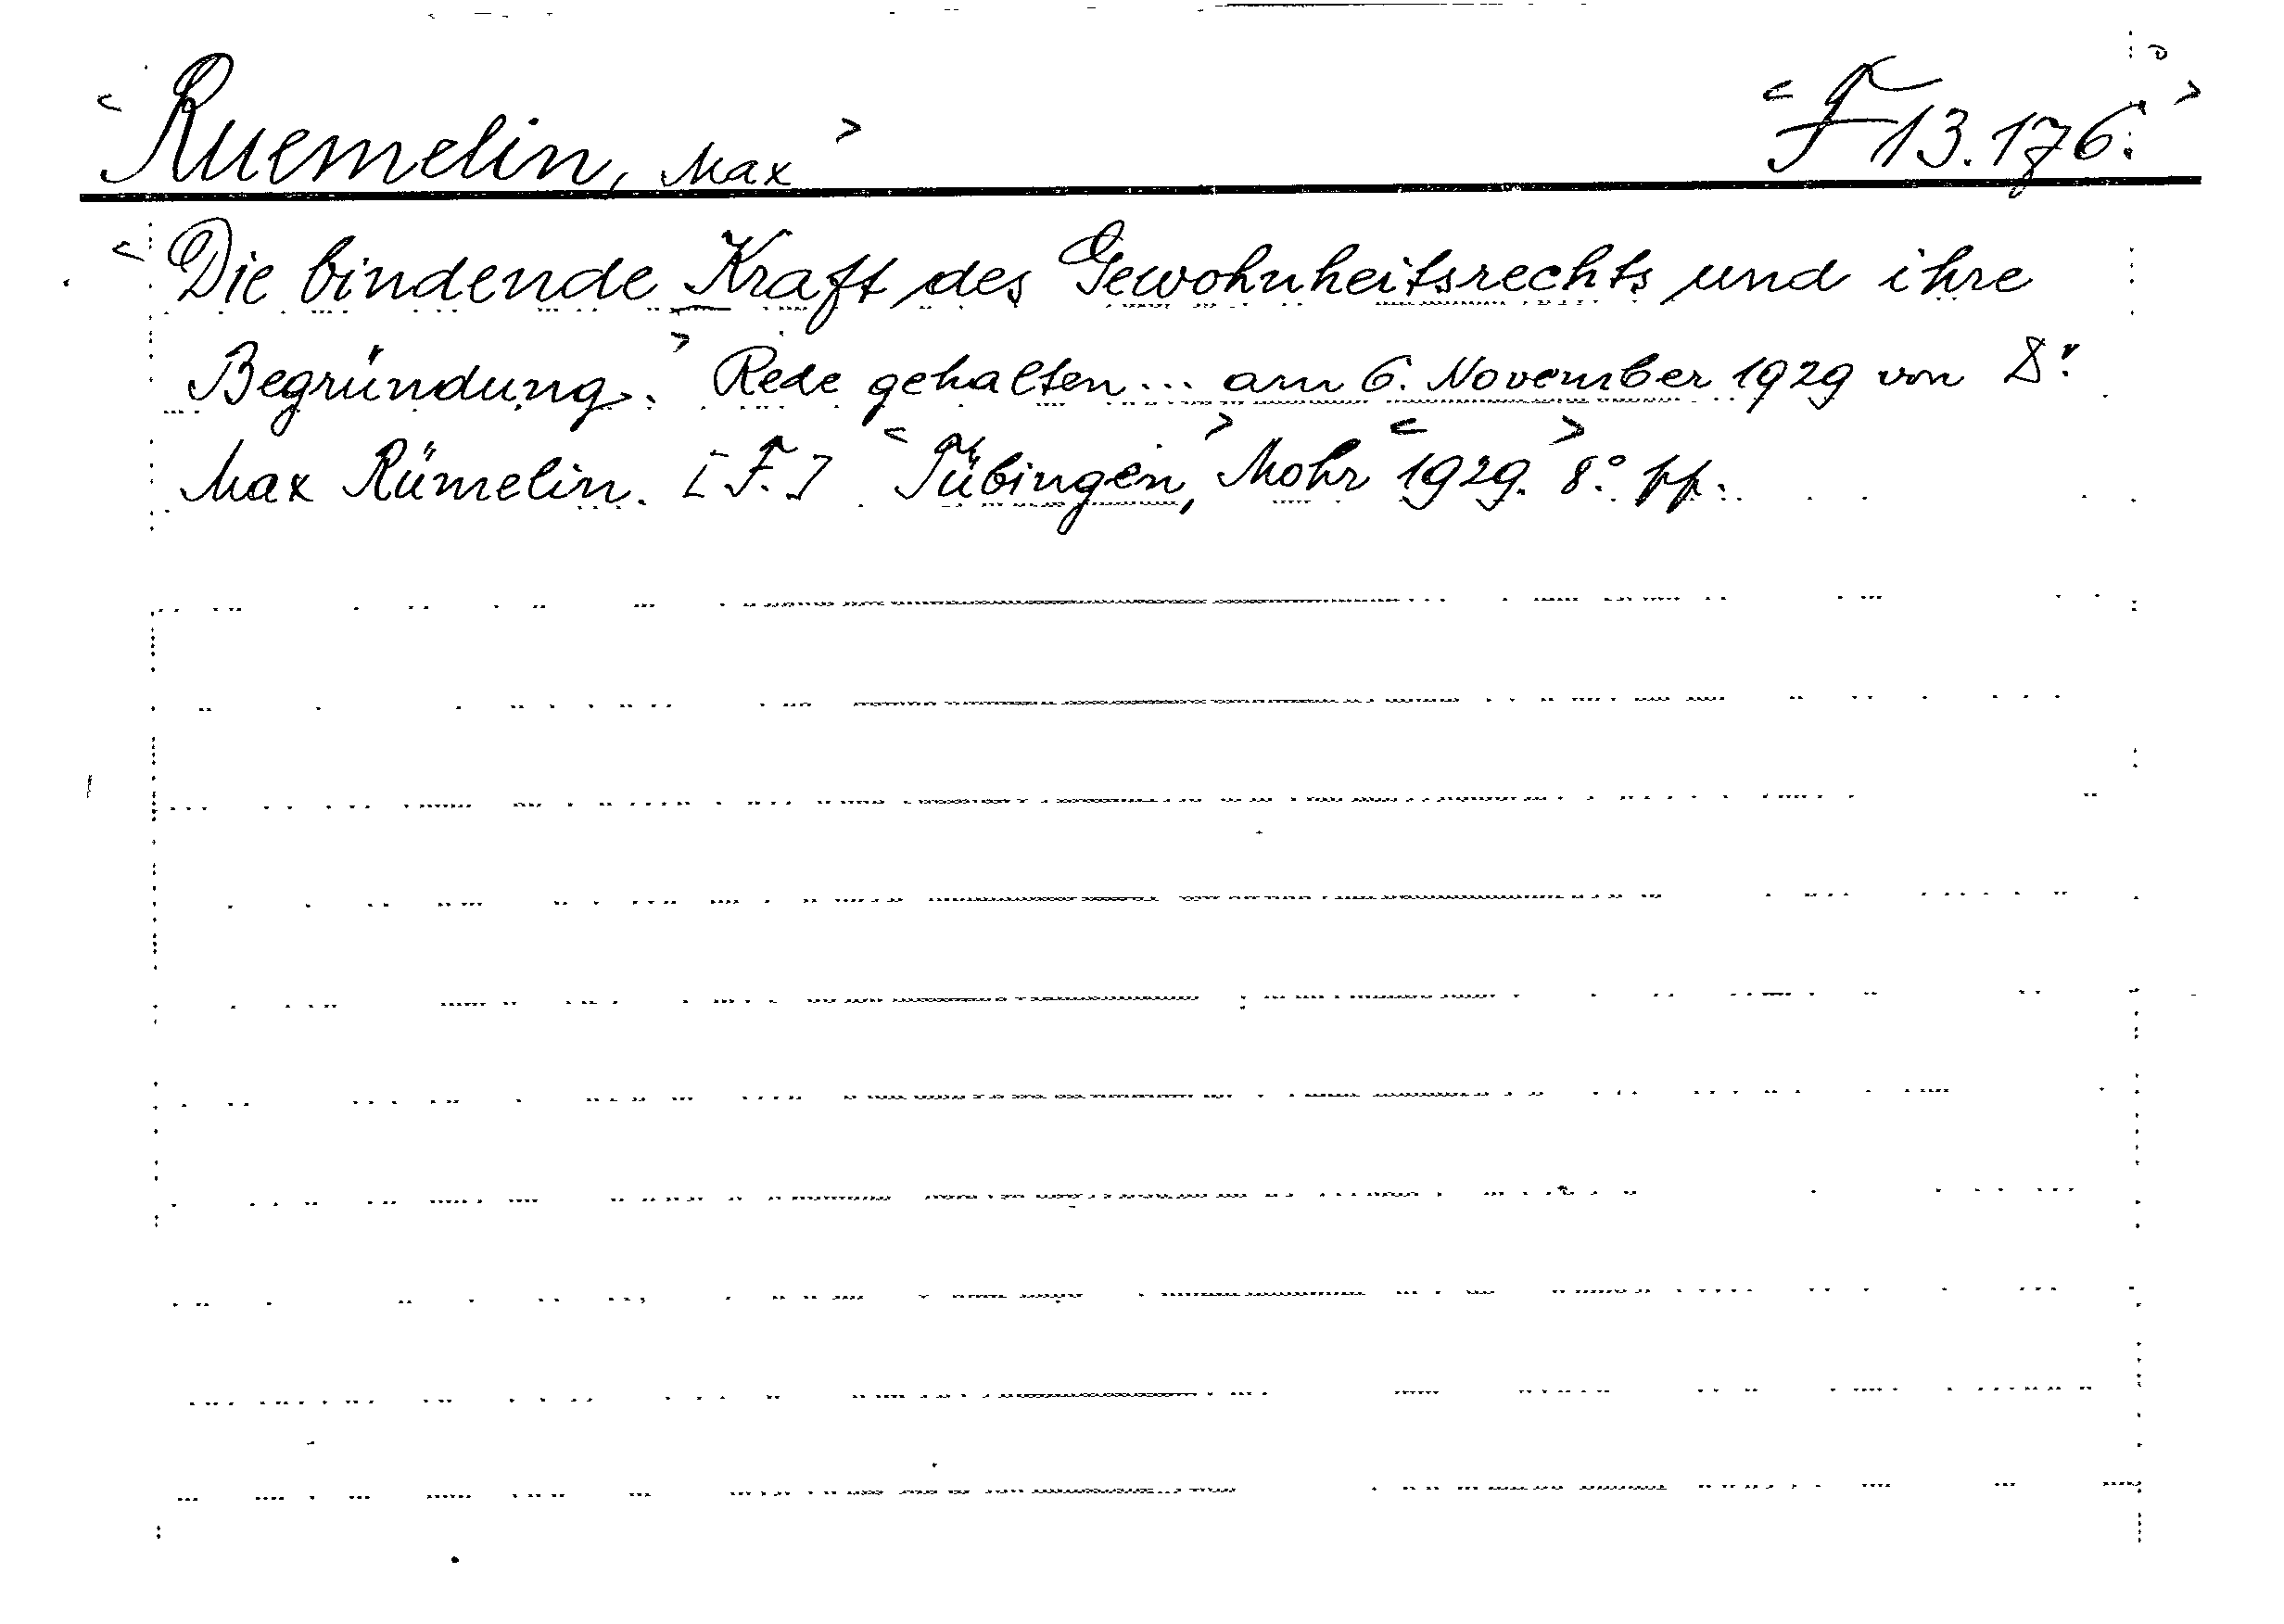 < Ruemelin, Max > < F 13.176. >
< Die bindende Kraft des Gewohnheitsrechts und ihre
Begründung. > Rede gehalten... am 6. November 1929 von Dr.
Max Rümelin. [F.] < Tübingen, > Mohr < 1929. > 8° pp.